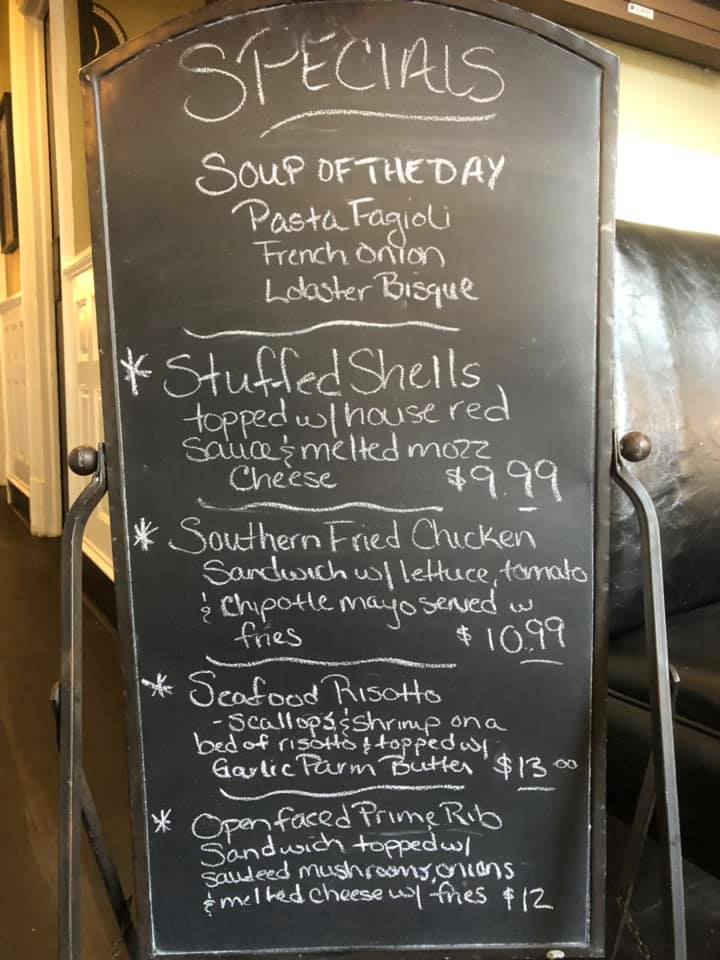 SPECIALS
SOUP OF THE DAY
Pasta Fagioli
French Onion
Lobster Bisque
* Stuffed Shells
topped w/ house red
sauce & melted mozz
Cheese $9.99
* Southern Fried Chicken
Sandwich w/ lettuce, tomato
& Chipotle mayo served w
fries $10.99
* Seafood Risotto
- Scallops & Shrimp on a
bed of risotto & topped w/
Garlic Parm Butter $13.00
* Open faced Prime Rib
Sandwich topped w/
sauteed mushrooms, onions
& melted cheese w/ fries $12